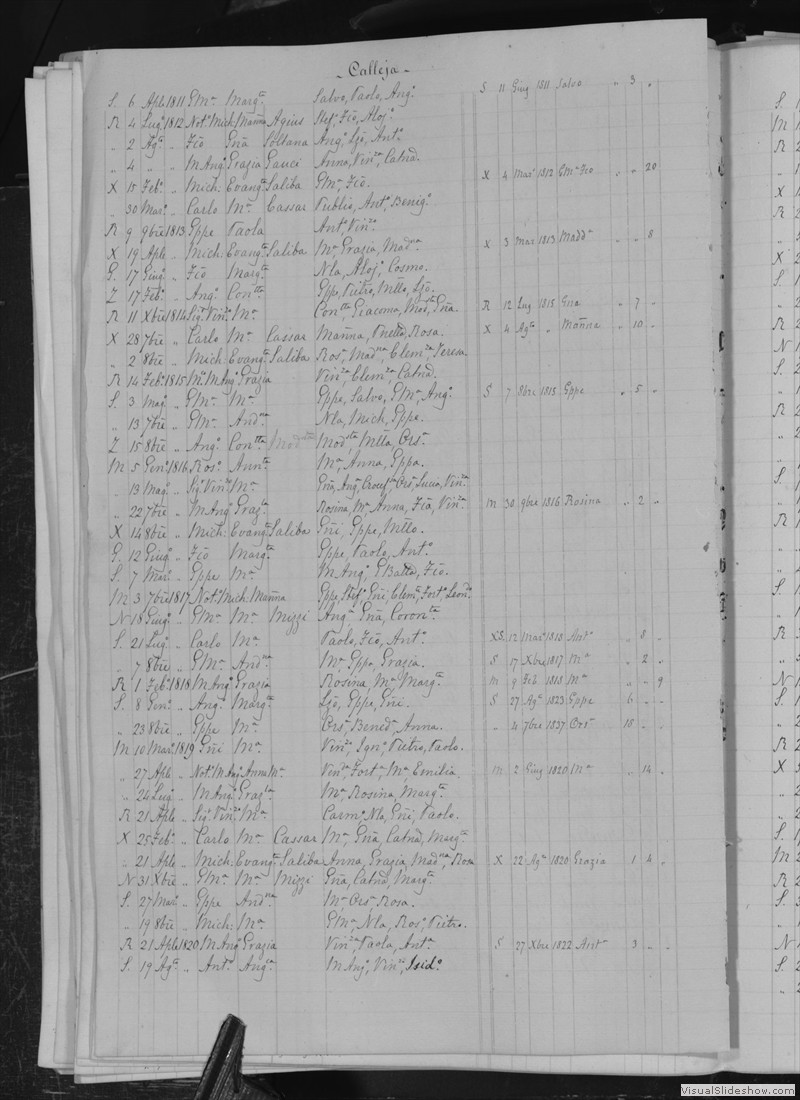 - Calleja -
S. 6 Aple 1811 GMa Marga Salvo, Paolo, Ango S 11 Giug 1811 Salvo " 3 "
R 4 Lugo 1812 Noto Mich: Marña Agius Stefo Fio, Aloj:
" 2 Aga " Fio Gña Soltana Ango, Ljo, Anto
" 4 " " M Ango Grazia Gauci Anna, Vinza Catña.
X 15 Febo " Mich: Evanga Saliba GMa, Fio. X 4 Maro 1812 GMa Fio " " 20
" 30 Maro " Carlo Ma Cassar Publio, Anto, Benigo
R 9 9bre 1813 Gppe Paola Anto, Vinzo
X 19 Aple " Mich: Evanga Saliba Ma, Grazia, Madna X 3 Mar 1813 Madda " " 8
G. 17 Giugo " Fio Marga Nla, Aloj: Cosmo.
Z 17 Febo " Ango Contta Gppe, Pietro, Mtto, Ljo.
R 11 Xbre 1814 Sigr Vinzo Ma Contta, Giacoma, Modsta, Gña. R 12 Lug 1815 Gña " 7 "
X 28 7bre " Carlo Ma Cassar Marña, Pnetta, Rosa. X 4 Aga " Marña " 10 "
" 2 8bre " Mich: Evanga Saliba Rosa, Madna, Clemza, Teresa.
R 14 Febo 1815 Mo M Ango Grazia Vinza, Clemza, Catña.
S. 3 Mago " GMa Ma Gppe, Salvo, GMa, Ango S 7 8bre 1815 Gppe " 5 "
" 13 7bre " GMa Andna Nla, Mich, Gppe.
Z 15 8bre " Ango Contta Modsta Modsta, Mtta, Orsa
M 5 Geno 1816 Roso Annta Ma, Anna, Gppa.
" 13 Mago " Sigr Vinzo Ma Gña, Anga, Crocifa Orsa Lucia, Vinza
" 22 7bre " M Ango Grazia Rosina, Ma, Anna, Fia, Vinza M 30 9bre 1816 Rosina " 2 "
X 14 8bre " Mich: Evanga Saliba Gñi, Gppe, Mtto.
G. 12 Giugo " Fio Marga Gppe, Paolo, Anto
S. 7 Maro " Gppe Ma M Ango, GBatta, Fio.
M 3 7bre 1817 Noto Mich: Marña Gppe, Stefo Gñi, Clemo, Forto Leono
N 18 Giugo " GMa Ma Mizzi Anga, Gña, Coronta
S. 21 Lugo " Carlo Ma Paolo, Fio, Anto XS. 12 Mar 1818 Anto " 8 "
" 7 8bre " GMa Andna Ma Gppa, Grazia. S 17 Xbre 1817 Ma " 2 "
R 1 Febo 1818 M Ango Grazia Rosina, Ma Marga M 9 Feb 1818 Ma " " 9
S. 8 Geno " Ango Marga Ljo, Gppe, Gñi. S 27 Aga 1823 Gppe 6 " "
" 23 8bre " Gppe Ma Orsa Beneda, Anna. " 4 7bre 1837 Orsa 18 " "
M 10 Maro 1819 Gñi Ma Vinzo, Igno, Pietro, Paolo.
" 27 Aple " Noto M Ango Anna Ma Vinza, Forta Ma Emilia M 2 Giug 1820 Ma " 14 "
" 24 Lug " M Ango Grazia Ma, Rosina, Marga
R 21 Aple " Sigr Vinzo Ma Carmo, Nla, Gñi, Paolo.
X 25 Febo " Carlo Ma Cassar Ma, Gña, Catña, Marga
" 21 Aple " Mich: Evanga Saliba Anna, Grazia, Madna, Rosa X 22 Aga 1820 Grazia 1 4 "
N 31 Xbre " GMa Ma Mizzi Gña, Catña, Marga
S. 27 Maro " Gppe Andna Ma Orsa Rosa.
" 19 8bre " Mich: Ma GMa, Nla, Roso, Pietro.
R 21 Aple 1820 M Ango Grazia Vinza, Paola, Anta S 27 Xbre 1822 Anta 3 " "
S. 19 Aga " Anto Anga M Ango, Vinzo, Isido
VisualSlideshow.com